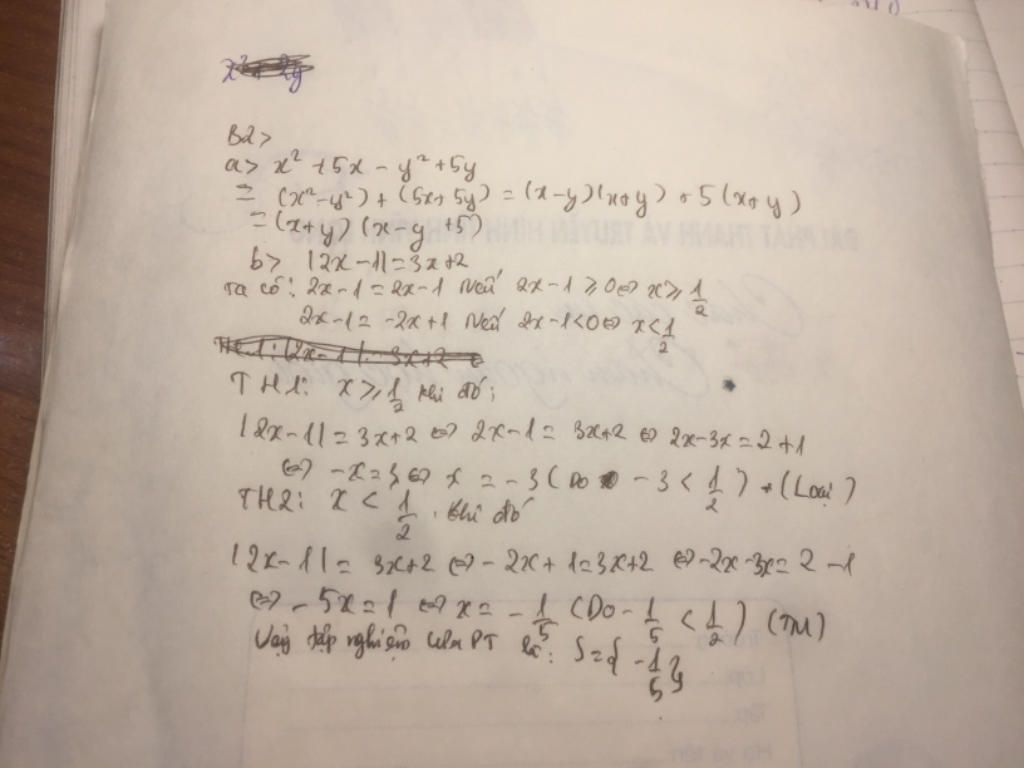 x² + 2y
B2>
a> x² + 5x - y² + 5y
= (x² - y²) + (5x + 5y) = (x - y)(x + y) + 5(x + y)
= (x + y)(x - y + 5)
b> |2x - 1| = 3x + 2
Ta có: 2x - 1 = 2x - 1 Nếu 2x - 1 ≥ 0 ⇔ x ≥ 1/2
2x - 1 = -2x + 1 Nếu 2x - 1 < 0 ⇔ x < 1/2
TH1: |2x - 1| = 3x + 2
TH1: x ≥ 1/2 khi đó:
|2x - 1| = 3x + 2 ⇔ 2x - 1 = 3x + 2 ⇔ 2x - 3x = 2 + 1
⇔ -x = 3 ⇔ x = -3 (Do -3 < 1/2) (Loại)
TH2: x < 1/2. khi đó
|2x - 1| = 3x + 2 ⇔ -2x + 1 = 3x + 2 ⇔ -2x - 3x = 2 - 1
⇔ -5x = 1 ⇔ x = -1/5 (Do -1/5 < 1/2) (TM)
Vậy tập nghiệm của PT là: S = {-1/5}